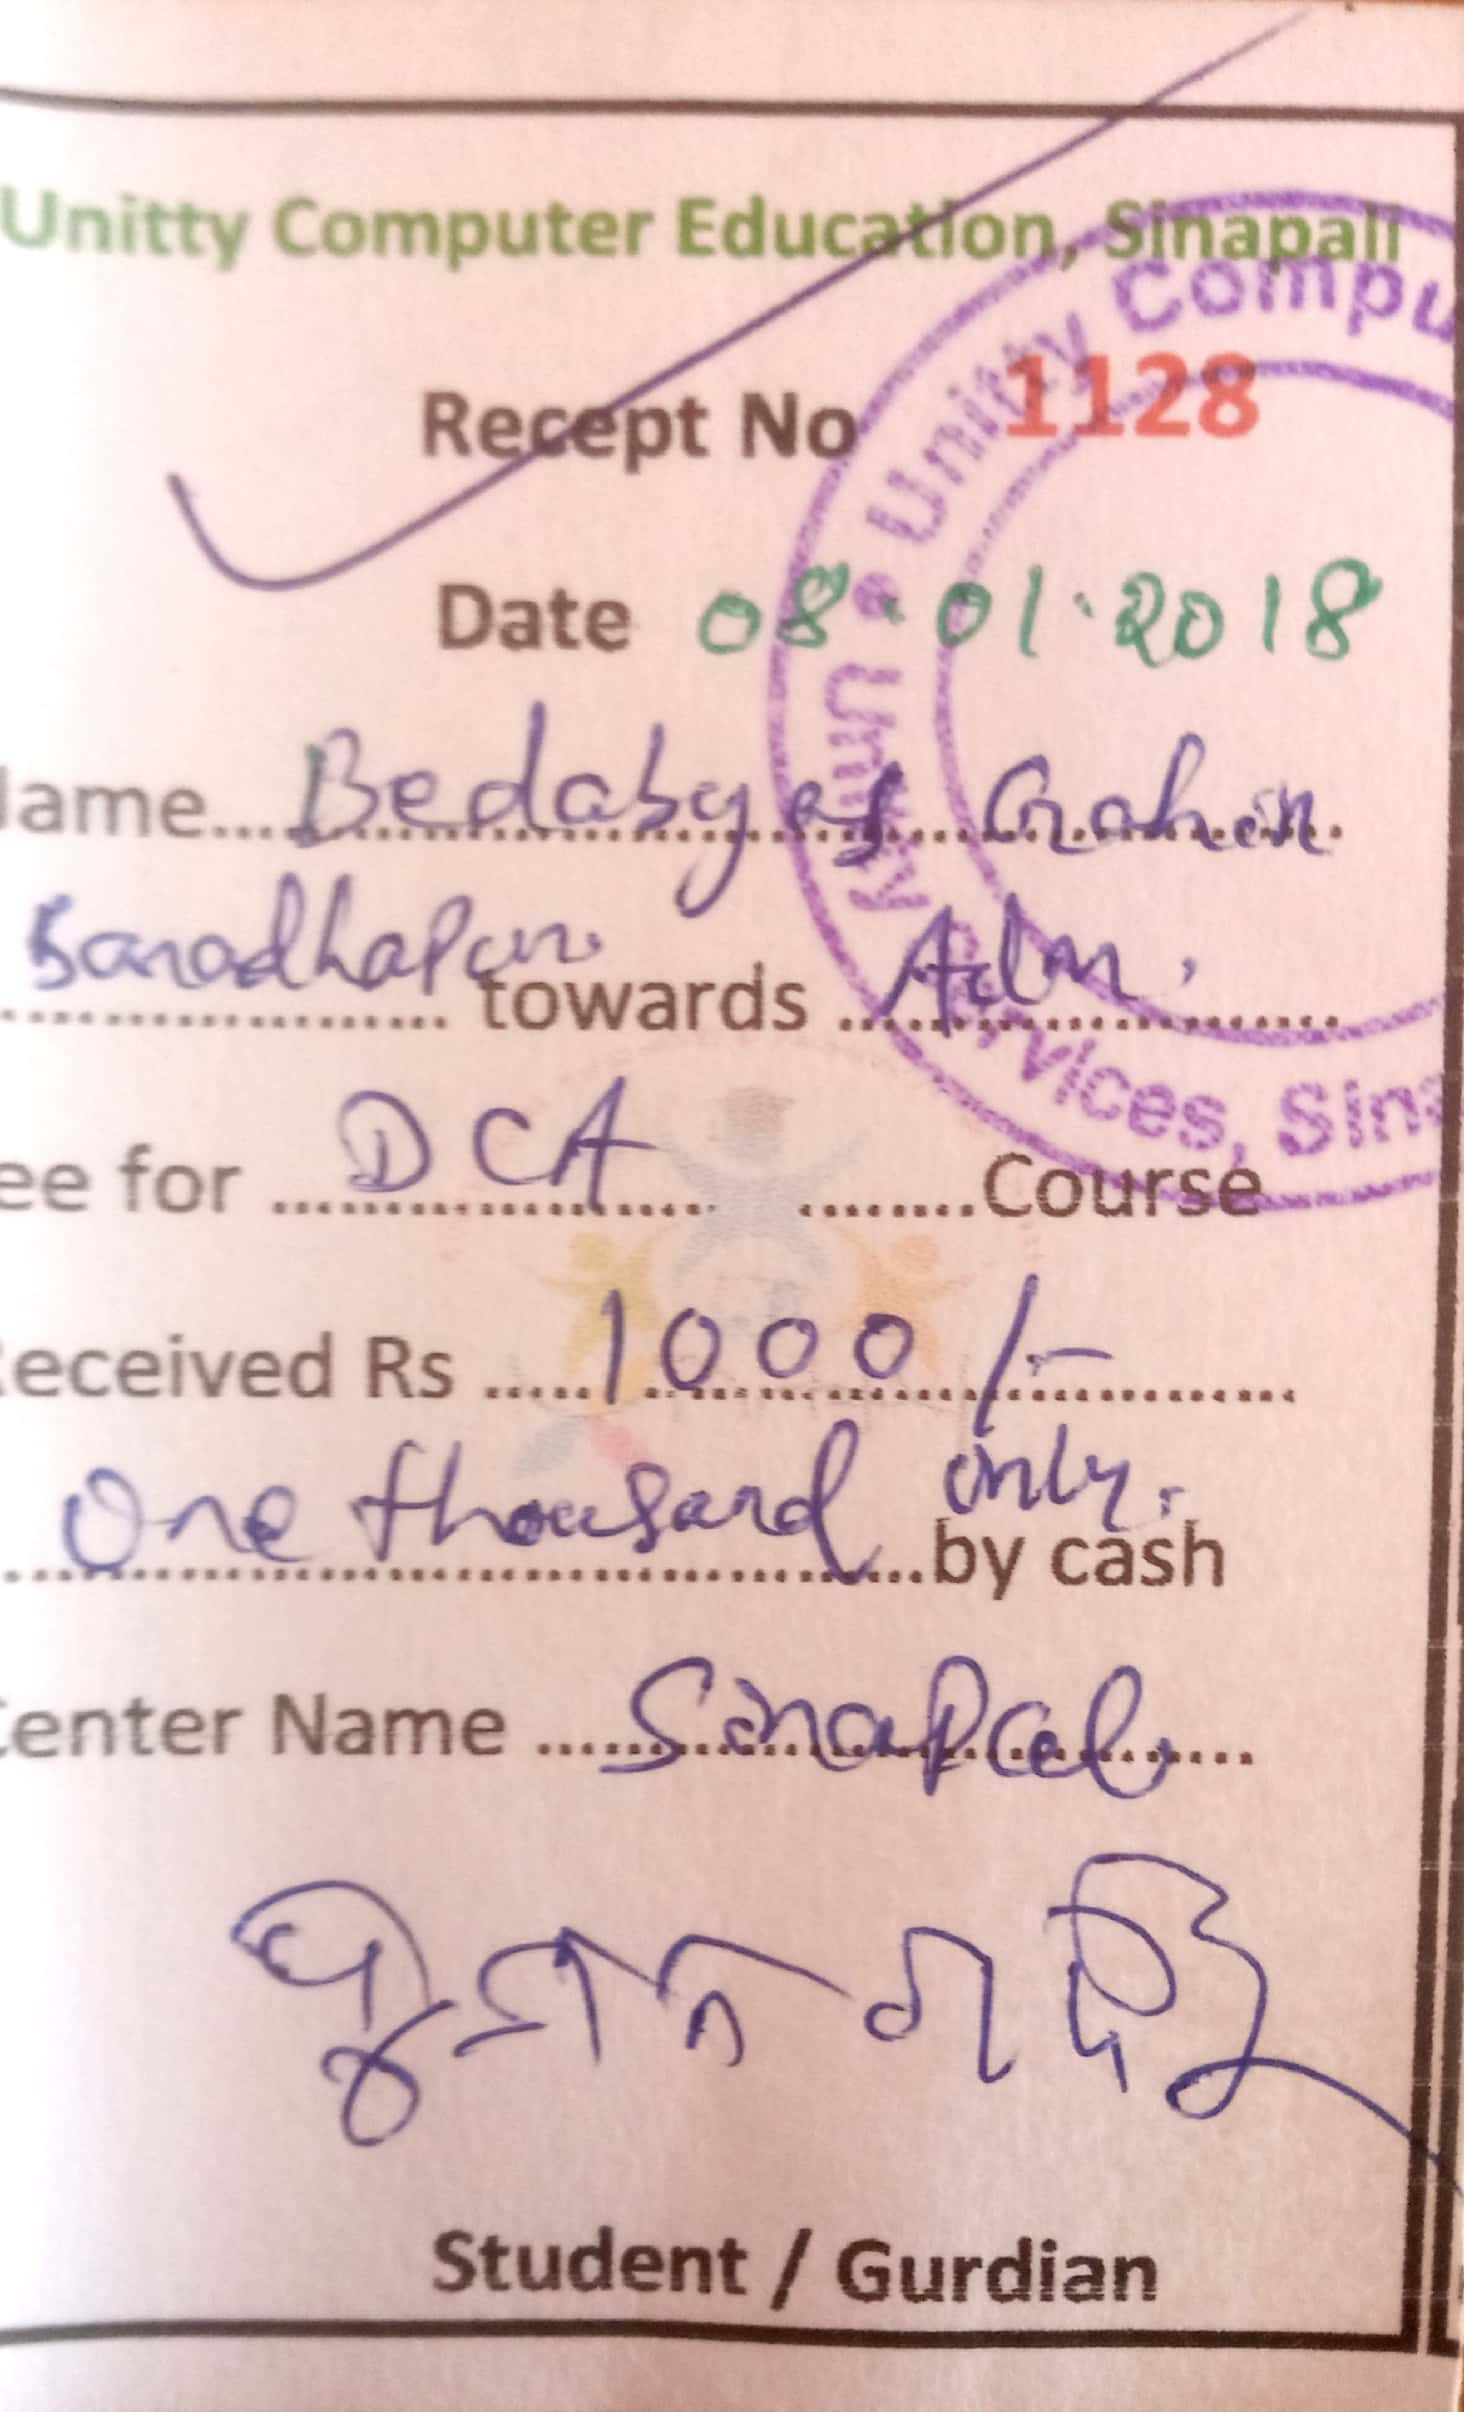 Unitty Computer Education, Sinapali
Recept No 1128
Date 08.01.2018
Name Bedabyas Gahir
towards Adm.
ee for DCA Course
Received Rs 1000/-
One thousand only.
by cash
Center Name Sinapali
Student / Gurdian
Unitty Compu
Unitty Services, Sina